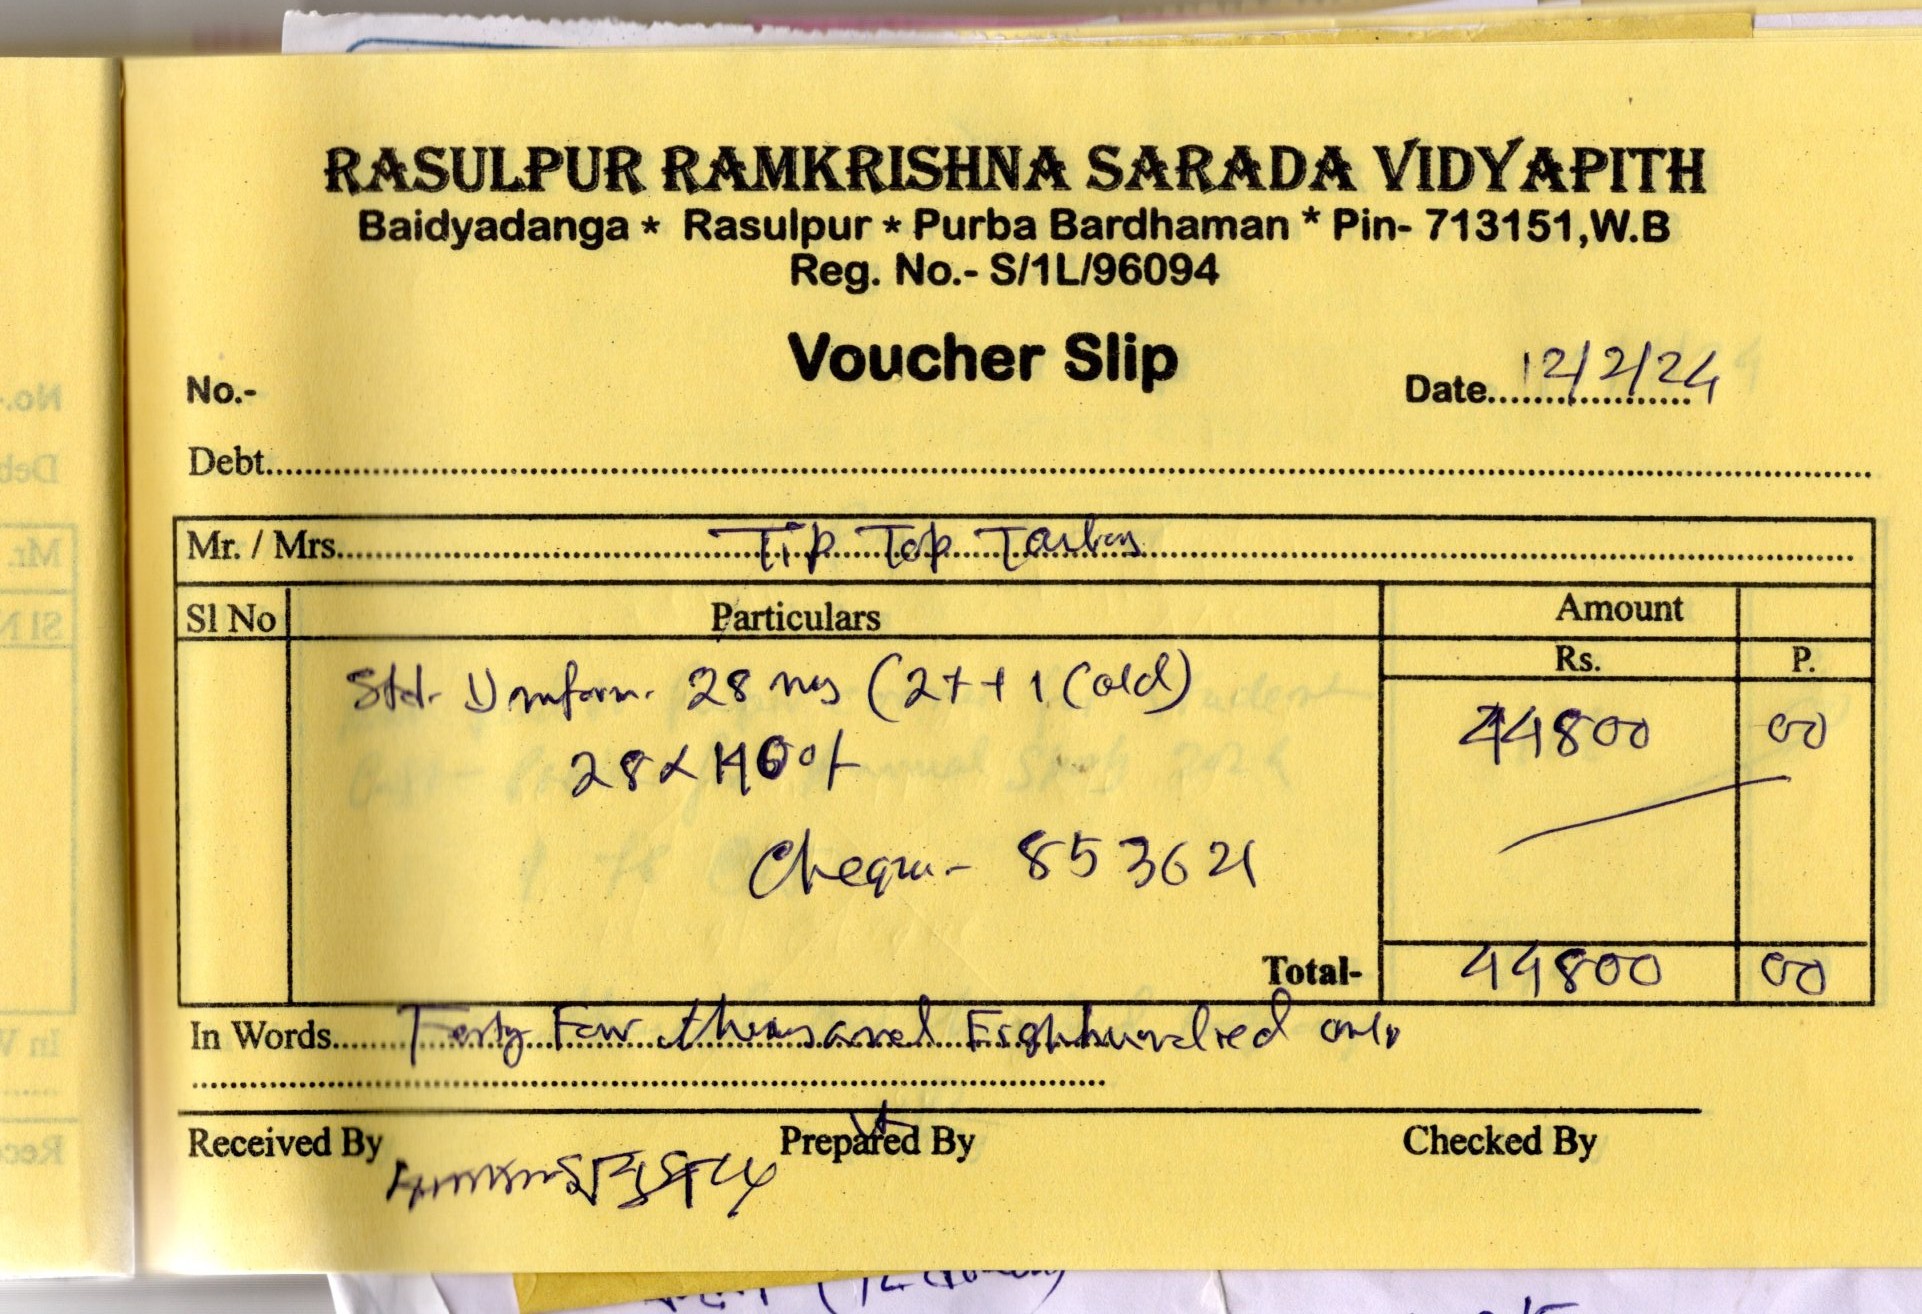 RASULPUR RAMKRISHNA SARADA VIDYAPITH
Baidyadanga * Rasulpur * Purba Bardhaman * Pin- 713151,W.B
Reg. No.- S/1L/96094
Voucher Slip
No.-
Date 12/2/24
Debt
Mr. / Mrs. Tip Top Tailors
Sl No Particulars Amount
Rs. P.
Std. Uniform. 28 (old) 44800 00
28 x
Cheque - 853621
Total- 44800 00
In Words Forty Four thousand Eighhundred only
Received By Prepared By Checked By